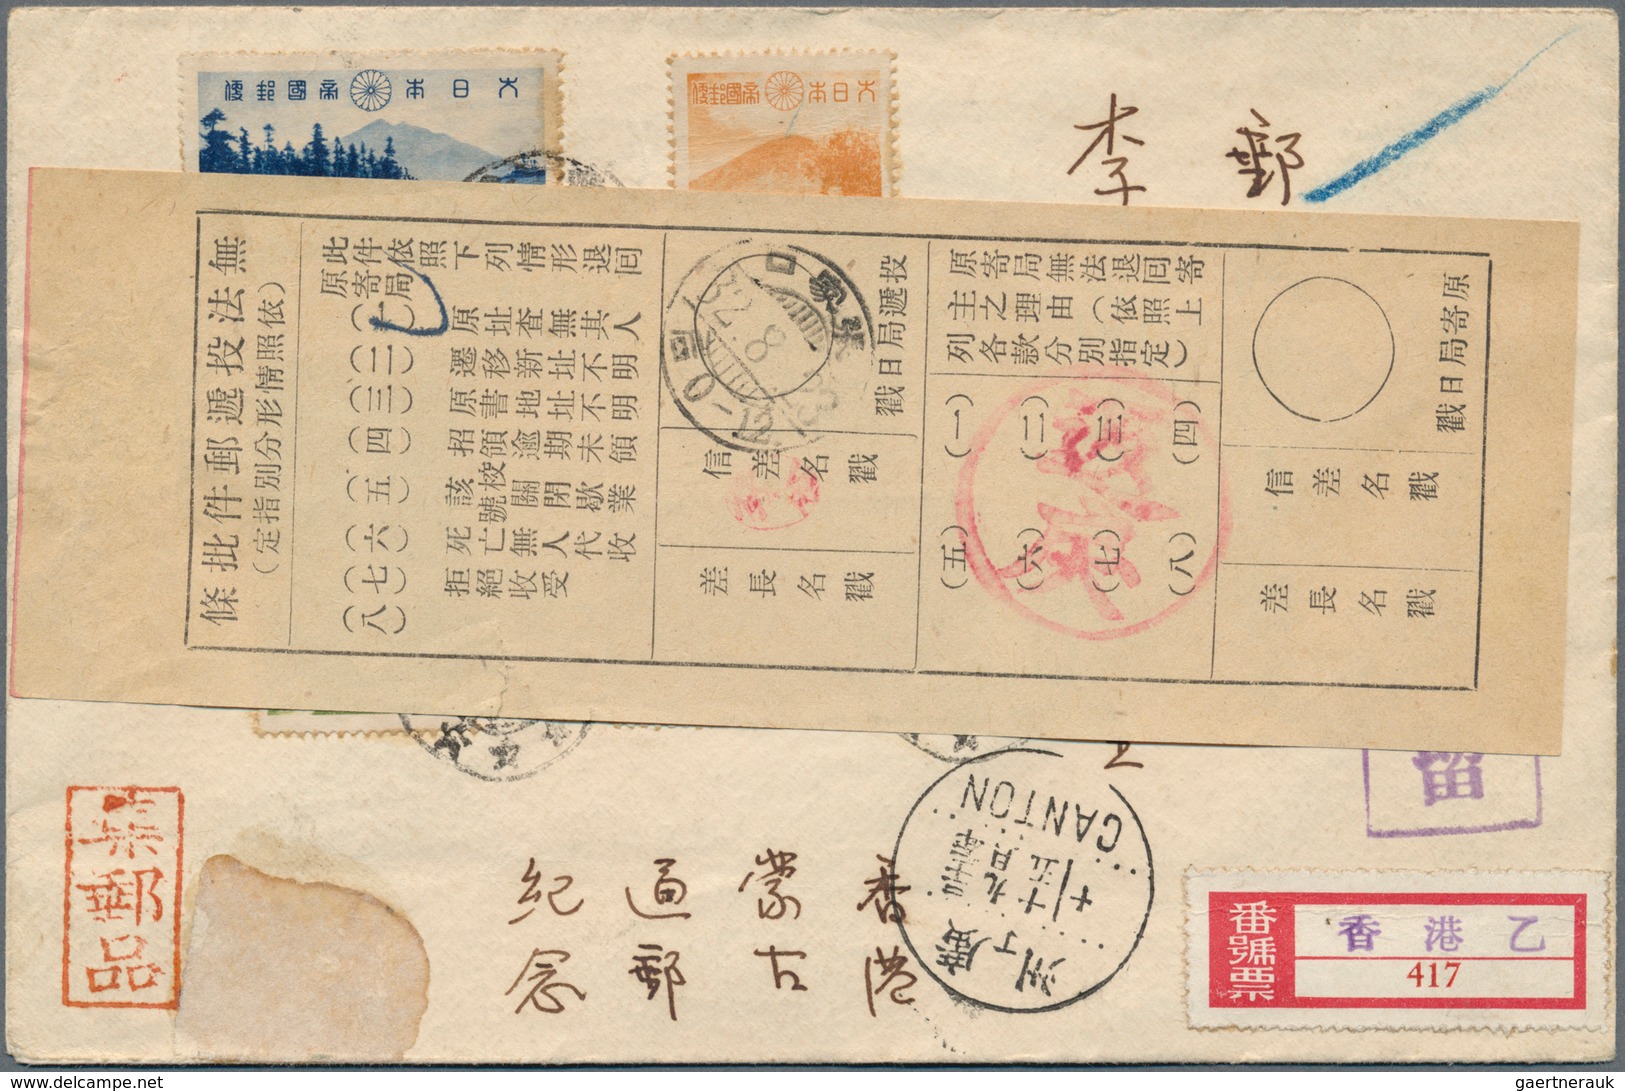 大日本帝國郵便
大日本帝國郵便
郵
李
無法投遞郵件批條
(依照情形分別指定)
此件依照下列情形退囘
原寄局
(一) 原址查無其人
(二) 遷移新址不明
(三) 原書地址不明
(四) 招領逾期未領
(五) 該號校關閉歇業
(六) 死亡無人代收
(七) 拒絕收受
(八)
投遞局日戳
信差名戳
差長名戳
原寄局無法退囘寄
主之理由(依照上
列各款分別指定)
(一) (二) (三) (四)
(五) (六) (七) (八)
原寄局日戳
信差名戳
差長名戳
留
CANTON
廣州
香港
蒙古
通郵
紀念
郵品
番號票
香港乙
417
gaertnerauk